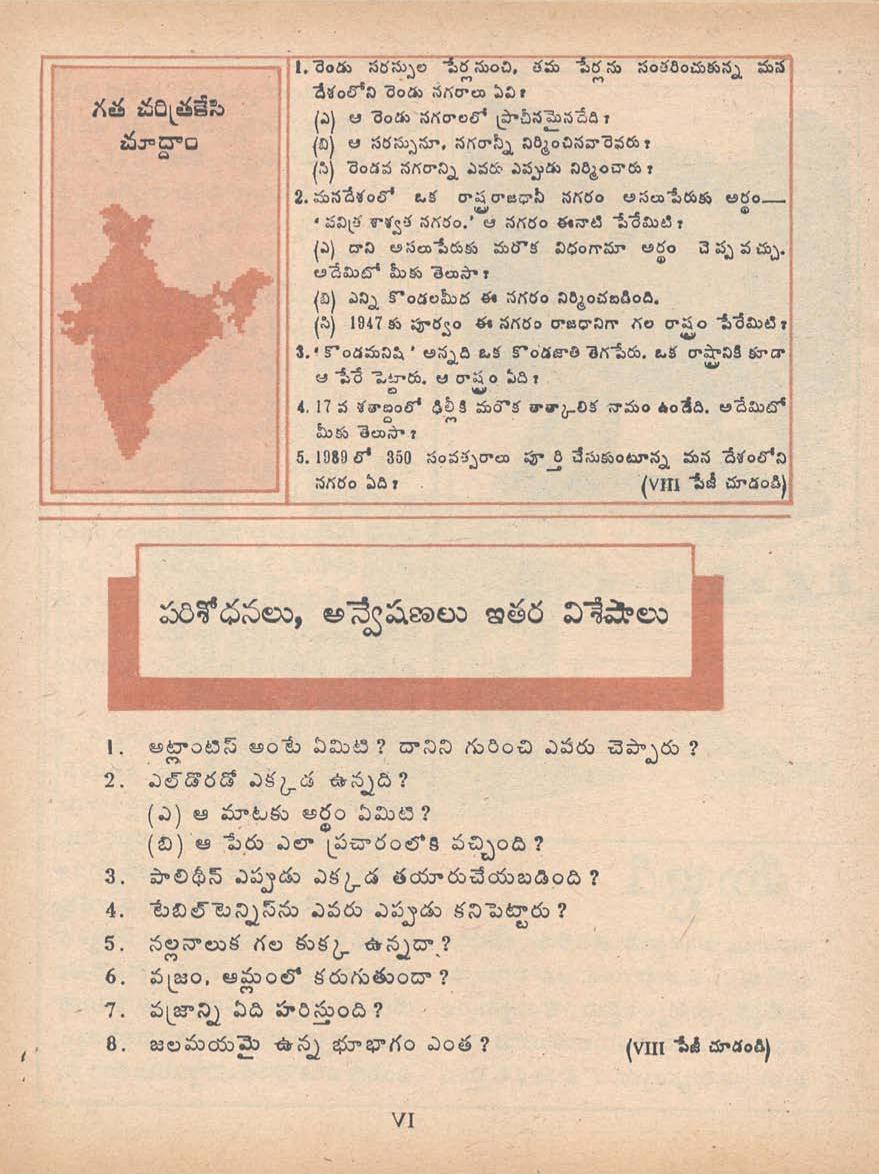 గత చరిత్రకేసి
చూద్దాం
1. రెండు సరస్సుల పేర్లనుంచి, తమ పేర్లను సంకరించుకున్న మన
దేశంలోని రెండు నగరాలు ఏవి?
(ఎ) ఆ రెండు నగరాలలో ప్రాచీనమైనదేది?
(బి) ఆ సరస్సునూ, నగరాన్నీ నిర్మించినవారెవరు?
(సి) రెండవ నగరాన్ని ఎవరు ఎప్పుడు నిర్మించారు?
2. మనదేశంలో ఒక రాష్ట్రరాజధానీ నగరం అసలుపేరుకు అర్థం—
'పవిత్ర శాశ్వత నగరం.' ఆ నగరం ఈనాటి పేరేమిటి?
(ఎ) దాని అసలుపేరుకు మరొక విధంగామా అర్థం చెప్పవచ్చు.
అదేమిటో మీకు తెలుసా?
(బి) ఎన్ని కొండలమీద ఈ నగరం నిర్మించబడింది.
(సి) 1947 కు పూర్వం ఈ నగరం రాజధానిగా గల రాష్ట్రం పేరేమిటి?
3. 'కొండమనిషి' అన్నది ఒక కొండజాతి తెగపేరు. ఒక రాష్ట్రానికి కూడా
ఆ పేరే పెట్టారు. ఆ రాష్ట్రం ఏది?
4. 17 వ శతాబ్దంలో ఢిల్లీకి మరొక తాత్కాలిక నామం ఉండేది. అదేమిటో
మీకు తెలుసా?
5. 1989 లో 350 సంవత్సరాలు పూర్తి చేసుకుంటూన్న మన దేశంలోని
నగరం ఏది? (VIII పేజీ చూడండి)
పరిశోధనలు, అన్వేషణలు ఇతర విశేషాలు
1. అట్లాంటిస్ అంటే ఏమిటి? దానిని గురించి ఎవరు చెప్పారు?
2. ఎల్‌డొరడో ఎక్కడ ఉన్నది?
(ఎ) ఆ మాటకు అర్థం ఏమిటి?
(బి) ఆ పేరు ఎలా ప్రచారంలోకి వచ్చింది?
3. పాలిథీన్ ఎప్పుడు ఎక్కడ తయారుచేయబడింది?
4. టేబిల్‌టెన్నిస్‌ను ఎవరు ఎప్పుడు కనిపెట్టారు?
5. నల్లనాలుక గల కుక్క ఉన్నదా?
6. వజ్రం, ఆమ్లంలో కరుగుతుందా?
7. వజ్రాన్ని ఏది హరిస్తుంది?
8. జలమయమై ఉన్న భూభాగం ఎంత? (VIII పేజీ చూడండి)
VI